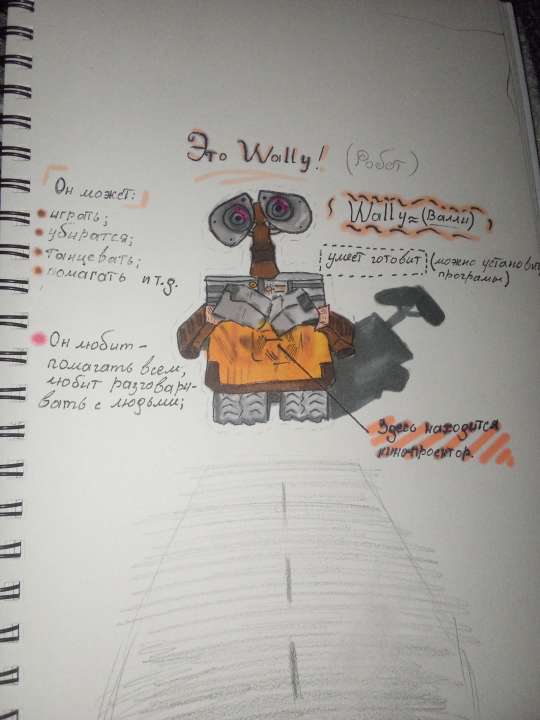 Это Wally! (Робот)
Он может:
играть;
убиратся;
танцевать;
помагать и т.д.
Wally≈(Валли)
умеет готовит (можно установить
програмы)
Он любит -
помагать всем,
любит разговари-
вать с людьми;
Здесь находится
кино-проектор.